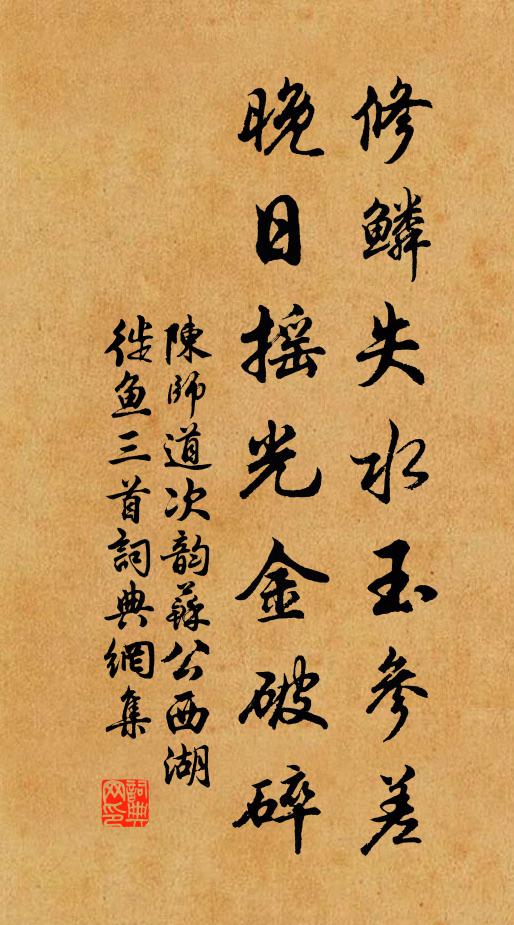 修鳞失水玉参差
晚日摇光金破碎
陳師道次韵蘇公西湖
徙鱼三首詞典網集
詞典网印